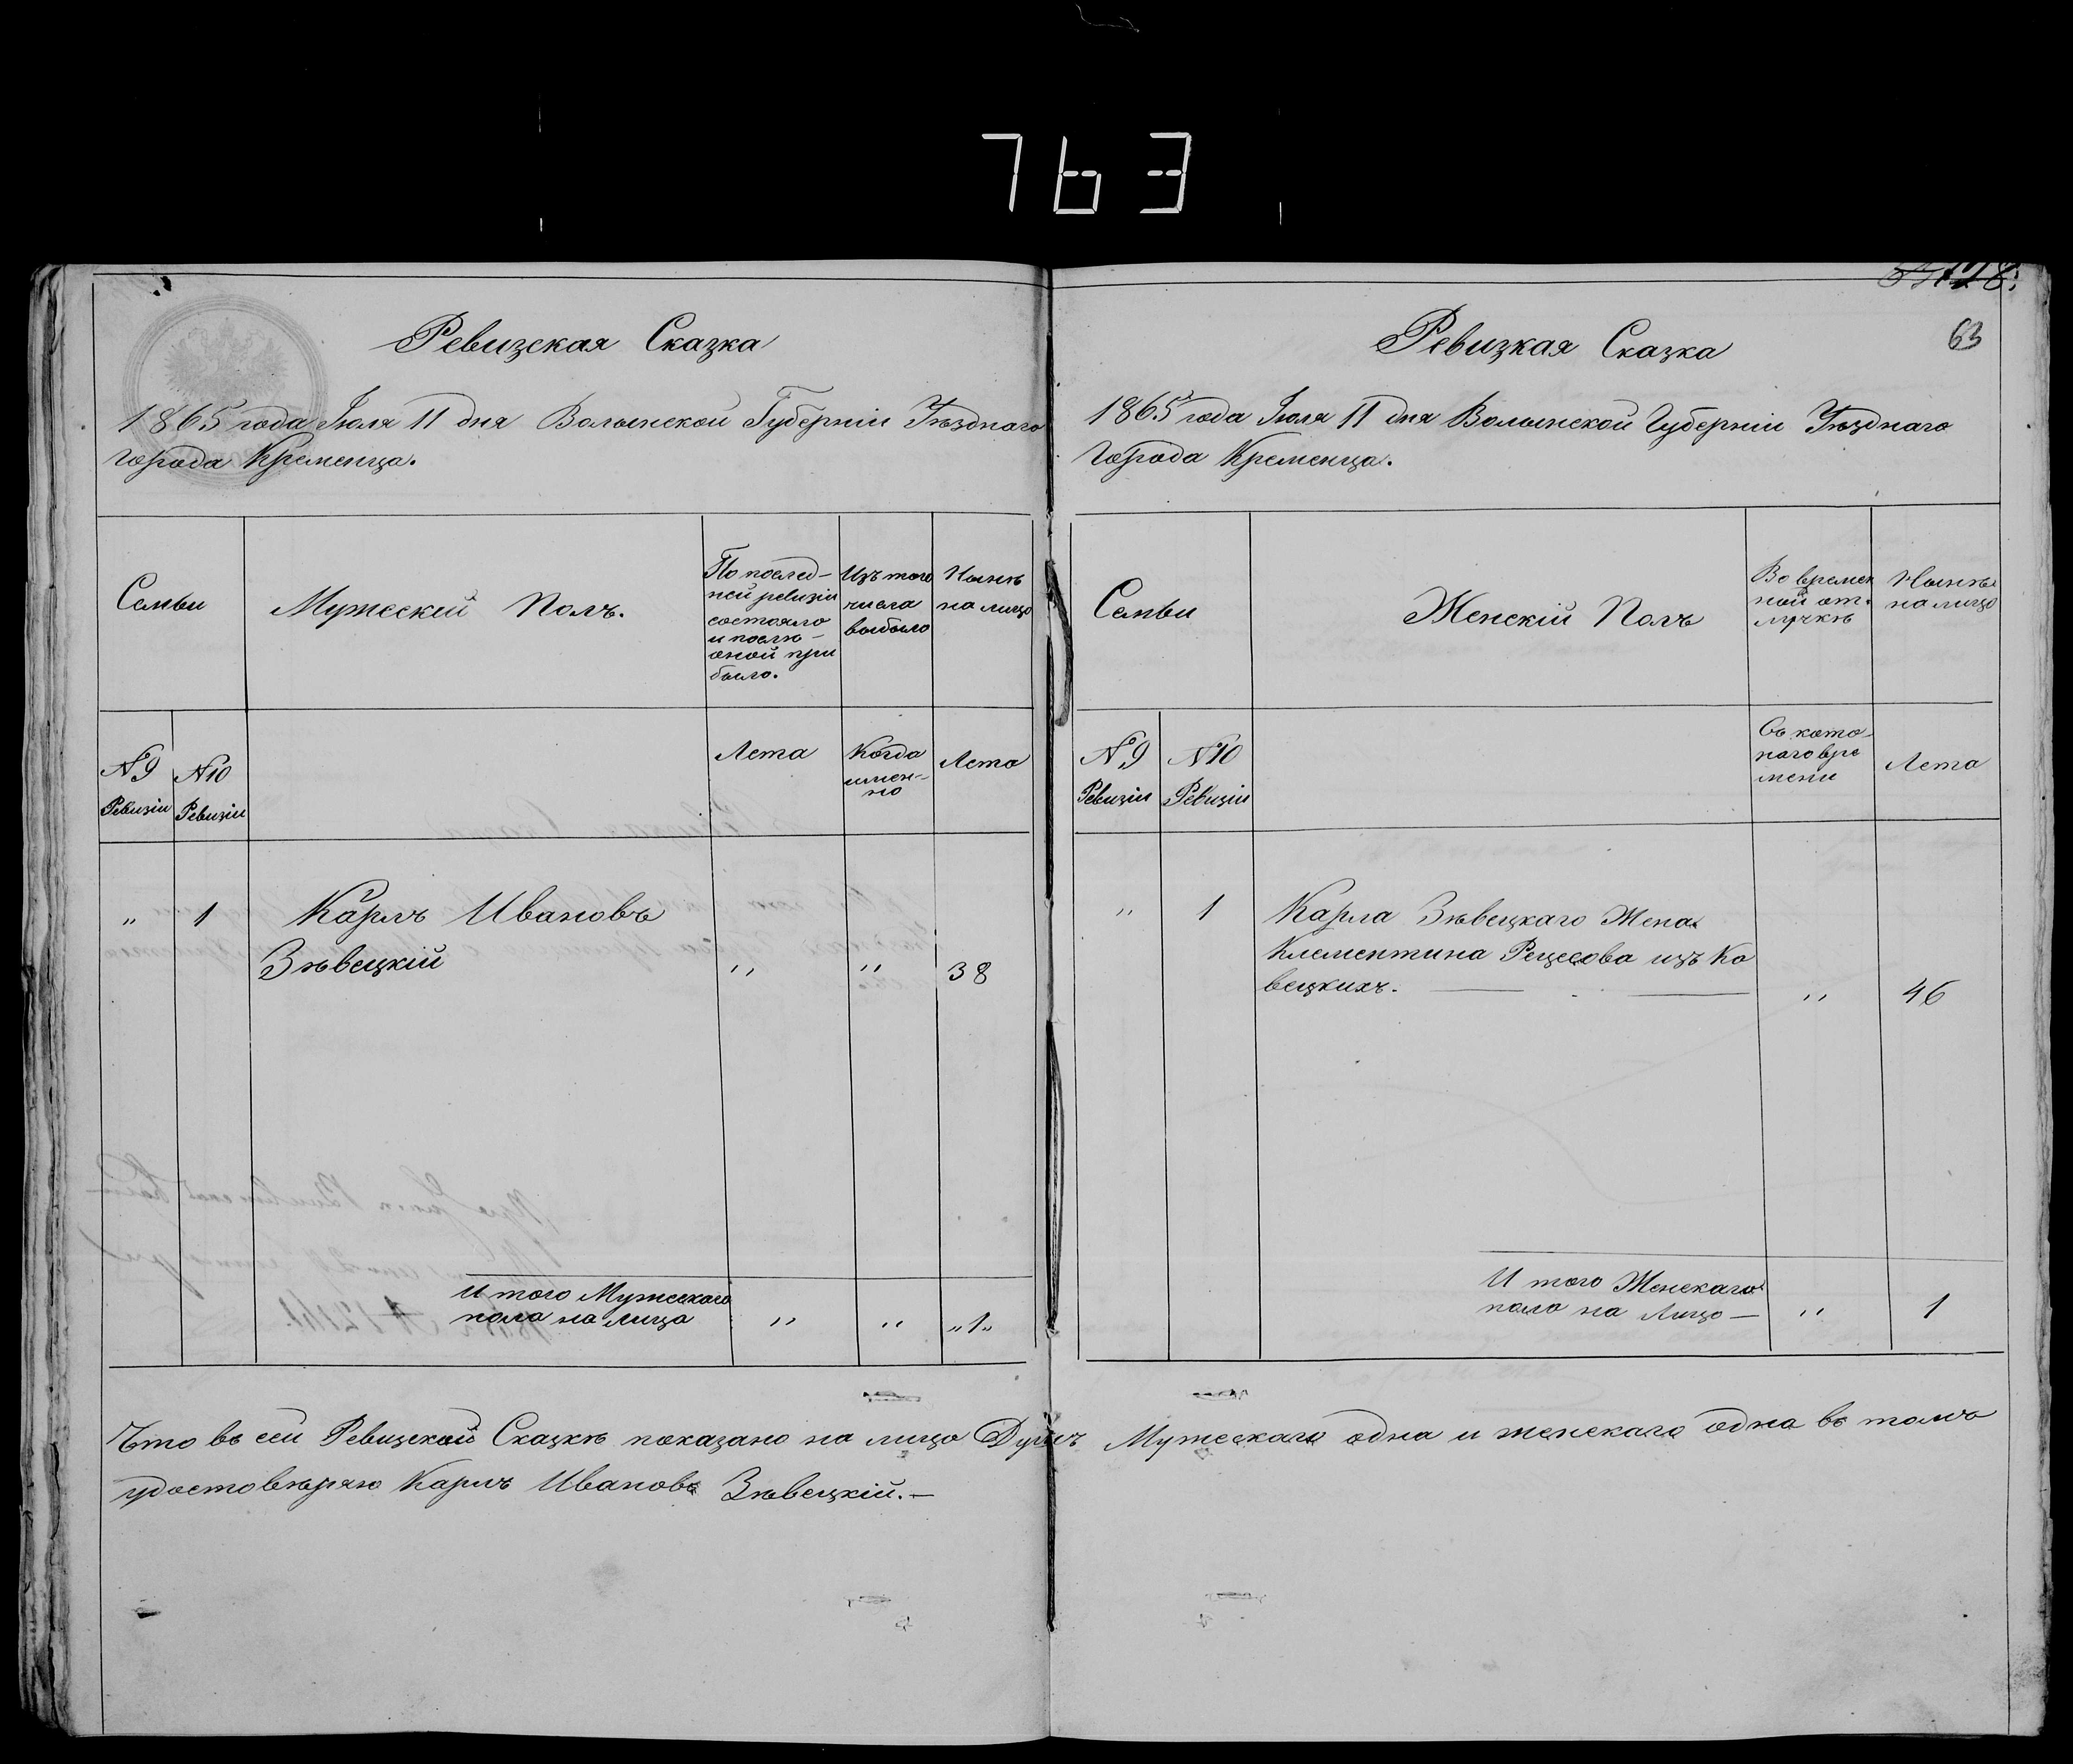 763
63
Ревизская Сказка
1865 года Іюля 11 дня Волынской Губерніи Уѣзднаго
города Кременца.
Семьи
Мужескій Полъ.
По послѣд-
ней ревизіи
состояло
и послѣ-
оной при
было.
Изъ того
числа
выбыло
Нынѣ
на лицо
№9
Ревизіи
№10
Ревизіи
Лета
Когда
имен-
но
Лета
„
1
Карлъ Ивановъ
Зѣвецкій
„
„
38
И того Мужескаго
пола на Лицо
„
„
„1„
Ревизкая Сказка
1865 года Іюля 11 дня Волынской Губерніи Уѣзднаго
города Кременца.
Семьи
Женскій Полъ
Во времен
ной от.
лучкѣ
Нынѣ
на лицо
№9
Ревизіи
№10
Ревизіи
Съ кото-
раго вре
мени
Лета
„
1
Карла Зѣвецкаго Жена
Клементина из Ко
вецкихъ.
„
46
И того Женскаго
пола на Лицо —
„
1
Что въ сей Ревизской Сказкѣ показано на лицо Душъ Мужескаго одна и женскаго одна въ томъ
удостовѣряю Карлъ Ивановъ Зѣвецкій.—